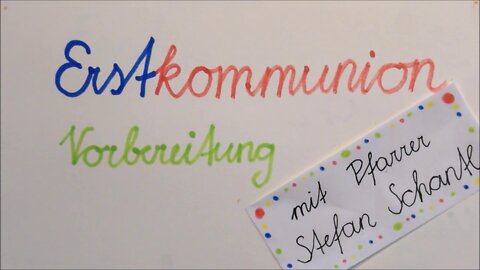 Erstkommunion
Vorbereitung
mit Pfarrer
Stefan Schantl